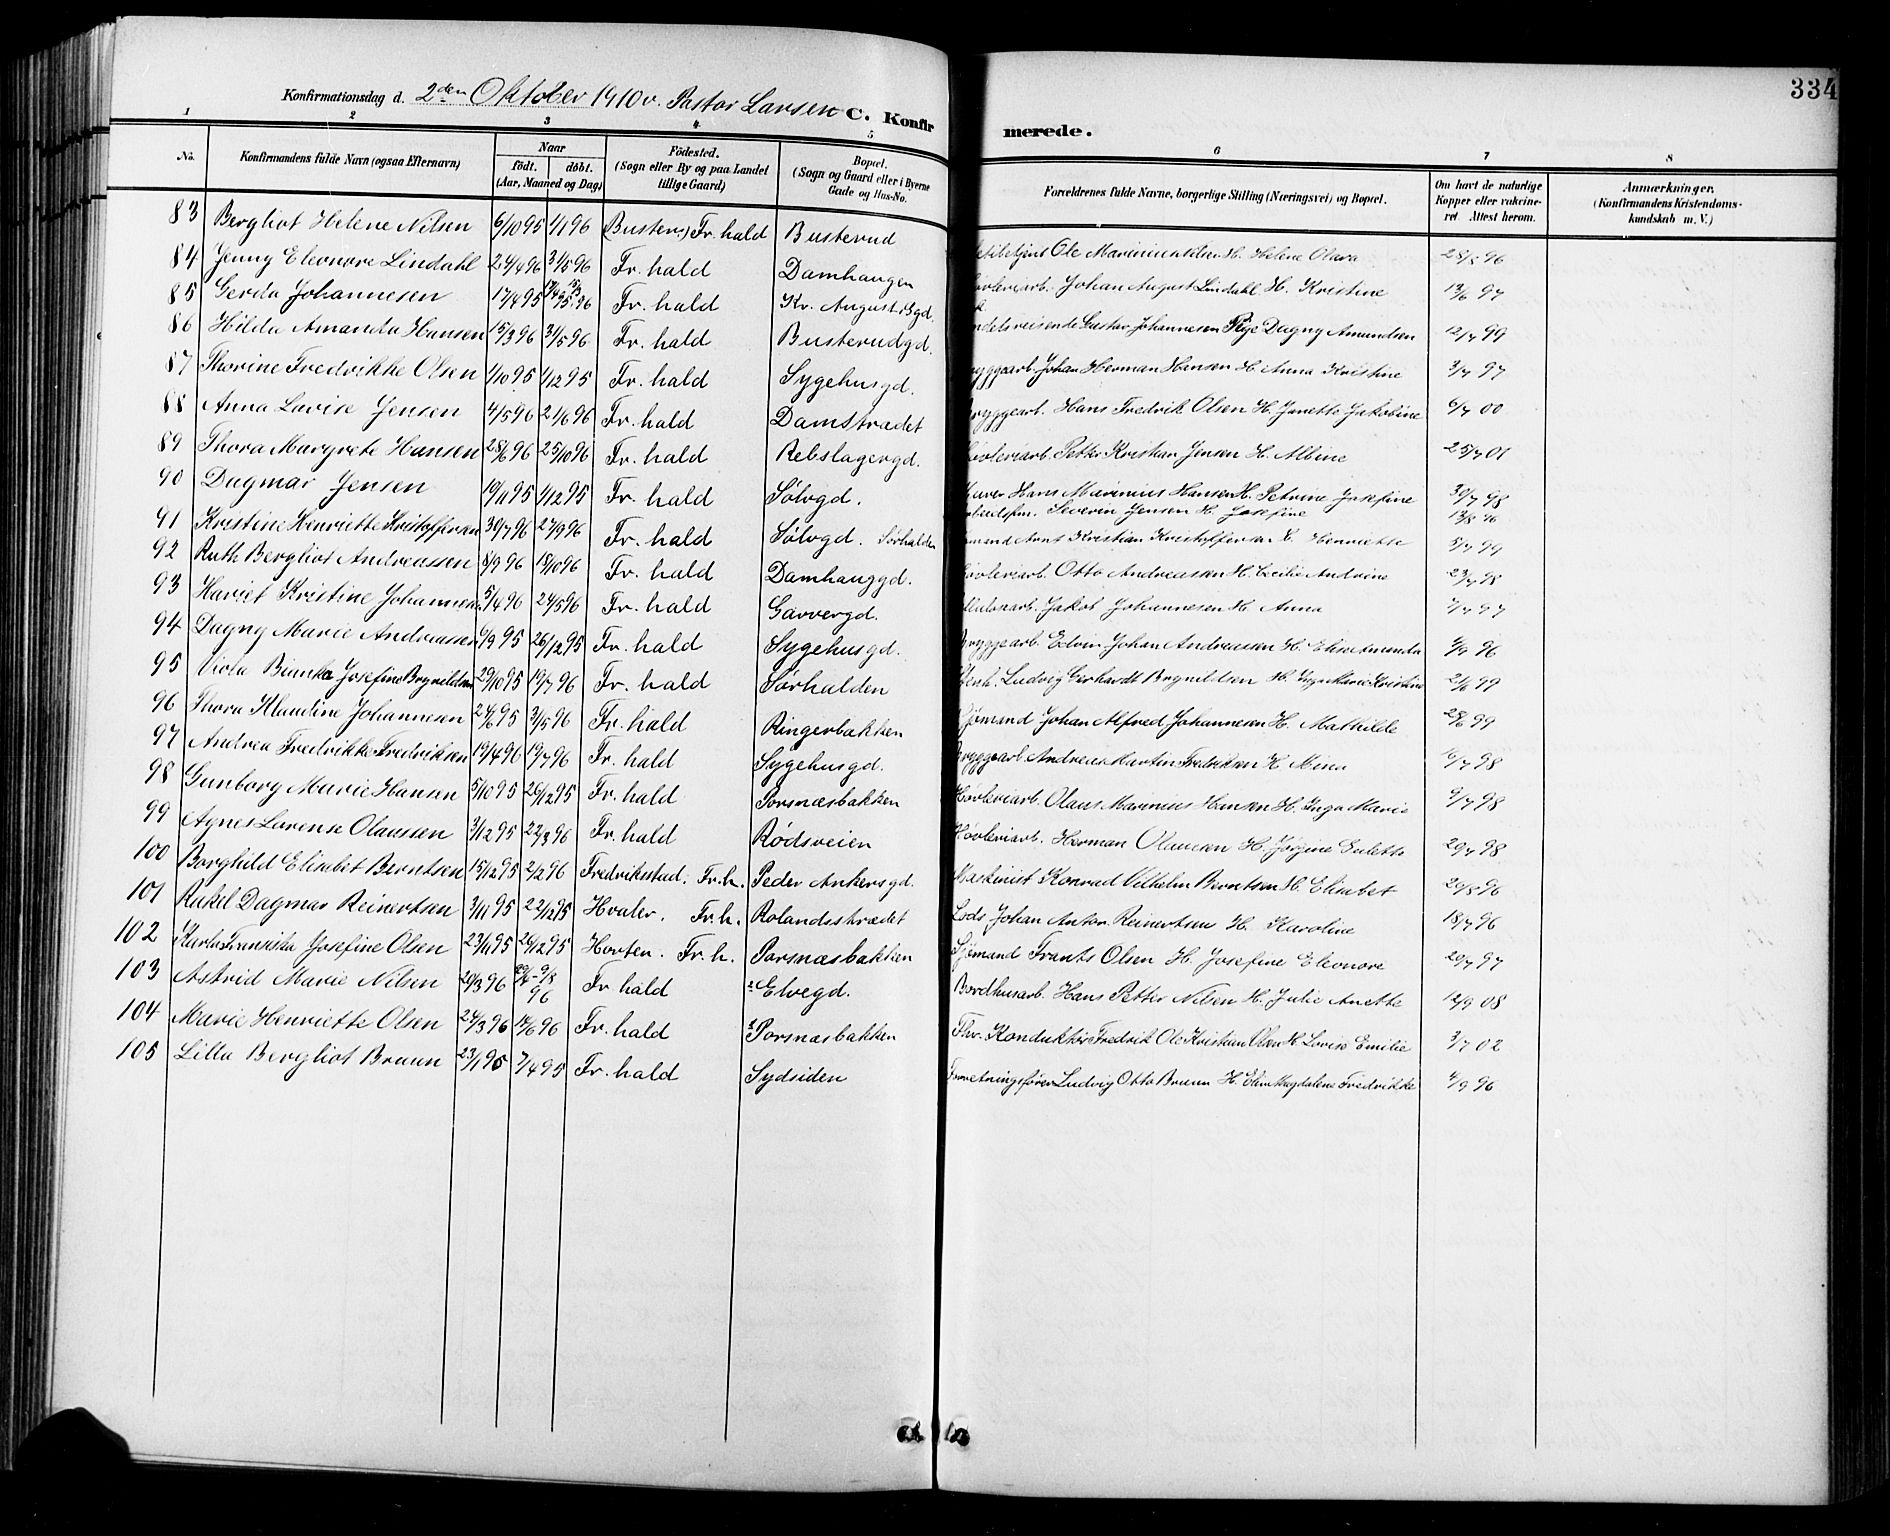 334
Konfirmationsdag d. 2den Oktober 1910 v. Pastor Larsen C. Konfir merede.
1 2 3 4 5 6 7 8
No. Konfirmandens fulde Navn (ogsaa Efternavn) Naar født. døbt. (Aar, Maaned og Dag) Fødested. (Sogn eller By og paa Landet tillige Gaard) Bopæl. (Sogn og Gaard eller i Byerne Gade og Hus-No. Forældrenes fulde Navne, borgerlige Stilling (Næringsvei) og Bopæl. Om havt de naturlige Kopper eller vakcineret Attest herom. Anmærkninger. (Konfirmandens Kristendomskundskab m. V.)
83 Bergliot Helene Nilsen 6/10 95 1/1 96 Fr. hald Busterud Ole Marinius Nilsen H. Helene Olava 28/5 96
84 Jenny Eleonore Lindahl 24/4 96 31/5 96 Fr. hald Damhaugen Johan August Lindahl H. Kristine 13/6 97
85 Gerda Johannesen 17/4 95 Fr. hald Kr. August Bgd. Gustav Johannesen Pige Dagny Amundsen 12/7 99
86 Hilda Amanda Hansen 15/3 96 31/5 96 Fr. hald Busterudgd. Johan Herman Hansen H. Anna Kristine 3/7 97
87 Thorine Fredrikke Olsen 1/10 95 1/12 95 Fr. hald Sygehusgd. Bryggearb. Hans Fredrik Olsen H. Janette Jakobine 6/7 00
88 Anna Lovise Jensen 4/5 96 21/6 96 Fr. hald Damstrædet Høvleriarb. Petter Kristian Jensen H. Albine 25/7 01
89 Thora Margrete Hansen 28/6 96 25/10 96 Fr. hald Rebslagergd. Hans Marinius Hansen H. Petrine Josefine 30/7 98
90 Dagmar Jensen 19/11 95 1/12 95 Fr. hald Sølvgd. Severin Jensen H. Josefine 13/8 96
91 Kristine Henriette Kristoffersen 30/7 96 27/9 96 Fr. hald Sølvgd. Sørhalden Kristian Kristoffersen H. Henriette 5/7 99
92 Ruth Bergliot Andreassen 8/9 96 18/10 96 Fr. hald Damhauggd. Høvleriarb. Otto Andreassen H. Cecilie Andrine 23/7 98
93 Hariet Kristine Johannesen 5/4 96 24/5 96 Fr. hald Garvergd. Jakob Johannesen H. Anna
94 Dagny Marie Andreassen 6/9 95 26/12 95 Fr. hald Sygehusgd. Bryggearb. Edvin Johan Andreassen H. Elise Amanda 6/9 96
95 Viola Bianka Josefine Brynildsen 29/10 95 19/7 96 Fr. hald Sørhalden Ludvig Gerhardt Brynildsen 21/6 99
96 Thora Klaudine Johannesen 24/6 95 3/5 96 Fr. hald Ringerbakken Sjømand Johan Alfred Johannesen H. Mathilde 28/6 99
97 Andrea Fredrikke Fredriksen 19/4 96 19/7 96 Fr. hald Sygehusgd. Bryggearb. Andreas Martin Fredriksen H. Mina 16/7 98
98 Gunborg Marie Hansen 5/10 95 26/12 95 Fr. hald Porsnæsbakken Høvleriarb. Olaus Marinius Hansen H. Inga Marie 9/7 98
99 Agnes Lovense Olaussen 3/12 95 22/3 96 Fr. hald Rødsveien Høvleriarb. Herman Olaussen H. Jørgine 29/7 98
100 Borghild Elisabet Berntsen 15/12 95 2/2 96 Fredrikstad. Fr.h. Peder Ankersgd. Maskinist Konrad Vilhelm Berntsen H. Elisabet 20/5 96
101 Rakel Dagmar Reinertsen 3/11 95 22/12 95 Hvaler. Fr.h. Rolandsstrædet Lods Johan Anton Reinertsen H. Karoline 18/7 96
102 Karla Franziska Josefine Olsen 23/11 95 26/12 95 Horten. Fr.h. Porsnæsbakken Sjømand Frants Olsen H. Josefine Eleonore 20/7 97
103 Astrid Marie Nilsen 20/3 96 Fr. hald Elvegd. Bordhusarb. Hans Petter Nilsen H. Julie Anette 12/9 08
104 Marie Henriette Olsen 24/3 96 14/6 96 Fr. hald Porsnæsbakken Konduktør Fredrik Ole Kristian Olsen H. Lovise Emilie 3/7 02
105 Lilla Bergliot Bruun 23/1 95 7/4 95 Fr. hald Sydsiden Forretningsfører Ludvig Otto Bruun H. Elise Magdalene Fredrikke 4/9 96